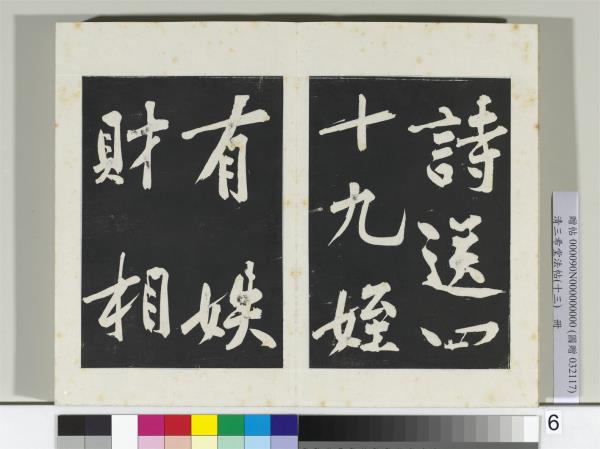 詩送四
十九姪
有
財相
贈帖 000090N000000000 (圖贈 032117)
清三希堂法帖(十三) 冊
6